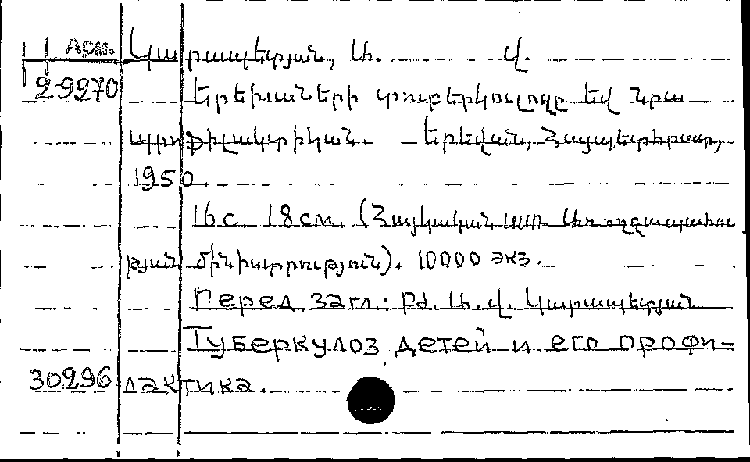 Арм. Կարապետյան, Ա. Վ.
29270 Երեխաների տուբերկուլոզը եվ նրա
պրոֆիլակտիկան. Երեվան, Հայպետհրատ,
1950.
16с. 18см. (Հայկական ՍՍՌ Առողջապահու
թյան մինիստրություն). 10000 экз.
Перед загл.: Բժ. Ա. Վ. Կարապետյան
Туберкулоз детей и его профи-
30296 лактика.